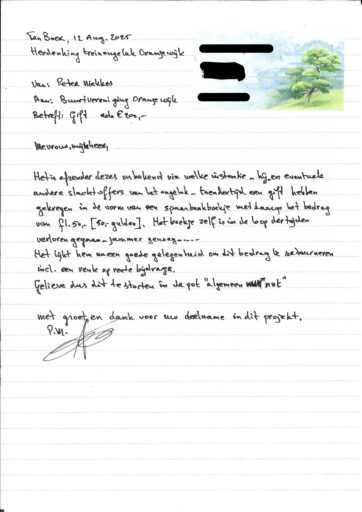 Ten Boer, 12 Aug. 2025
Herdenking treinongeluk Oranjewijk
Van: Peter Mekkes
Aan: Buurtvereniging Oranjewijk
Betreft: Gift € 200,-
Mevrouw, mijnheer,
Het is afzender dezes onbekend via welke instantie - hij en eventuele
andere slachtoffers van het ongeluk - toendertijd een gift hebben
gekregen in de vorm van een spaarbankboekje met daarop het bedrag
van fl. 50,- [50,- gulden]. Het boekje zelf is in de loop der tijden
verloren gegaan, jammer genoeg
Het lijkt hem nu een goede gelegenheid om dit bedrag te retourneren
incl. een rente op rente bijdrage.
Gelieve dus dit te storten in de pot "algemeen nut"
Met groet en dank voor uw deelname in dit projekt,
P.M.